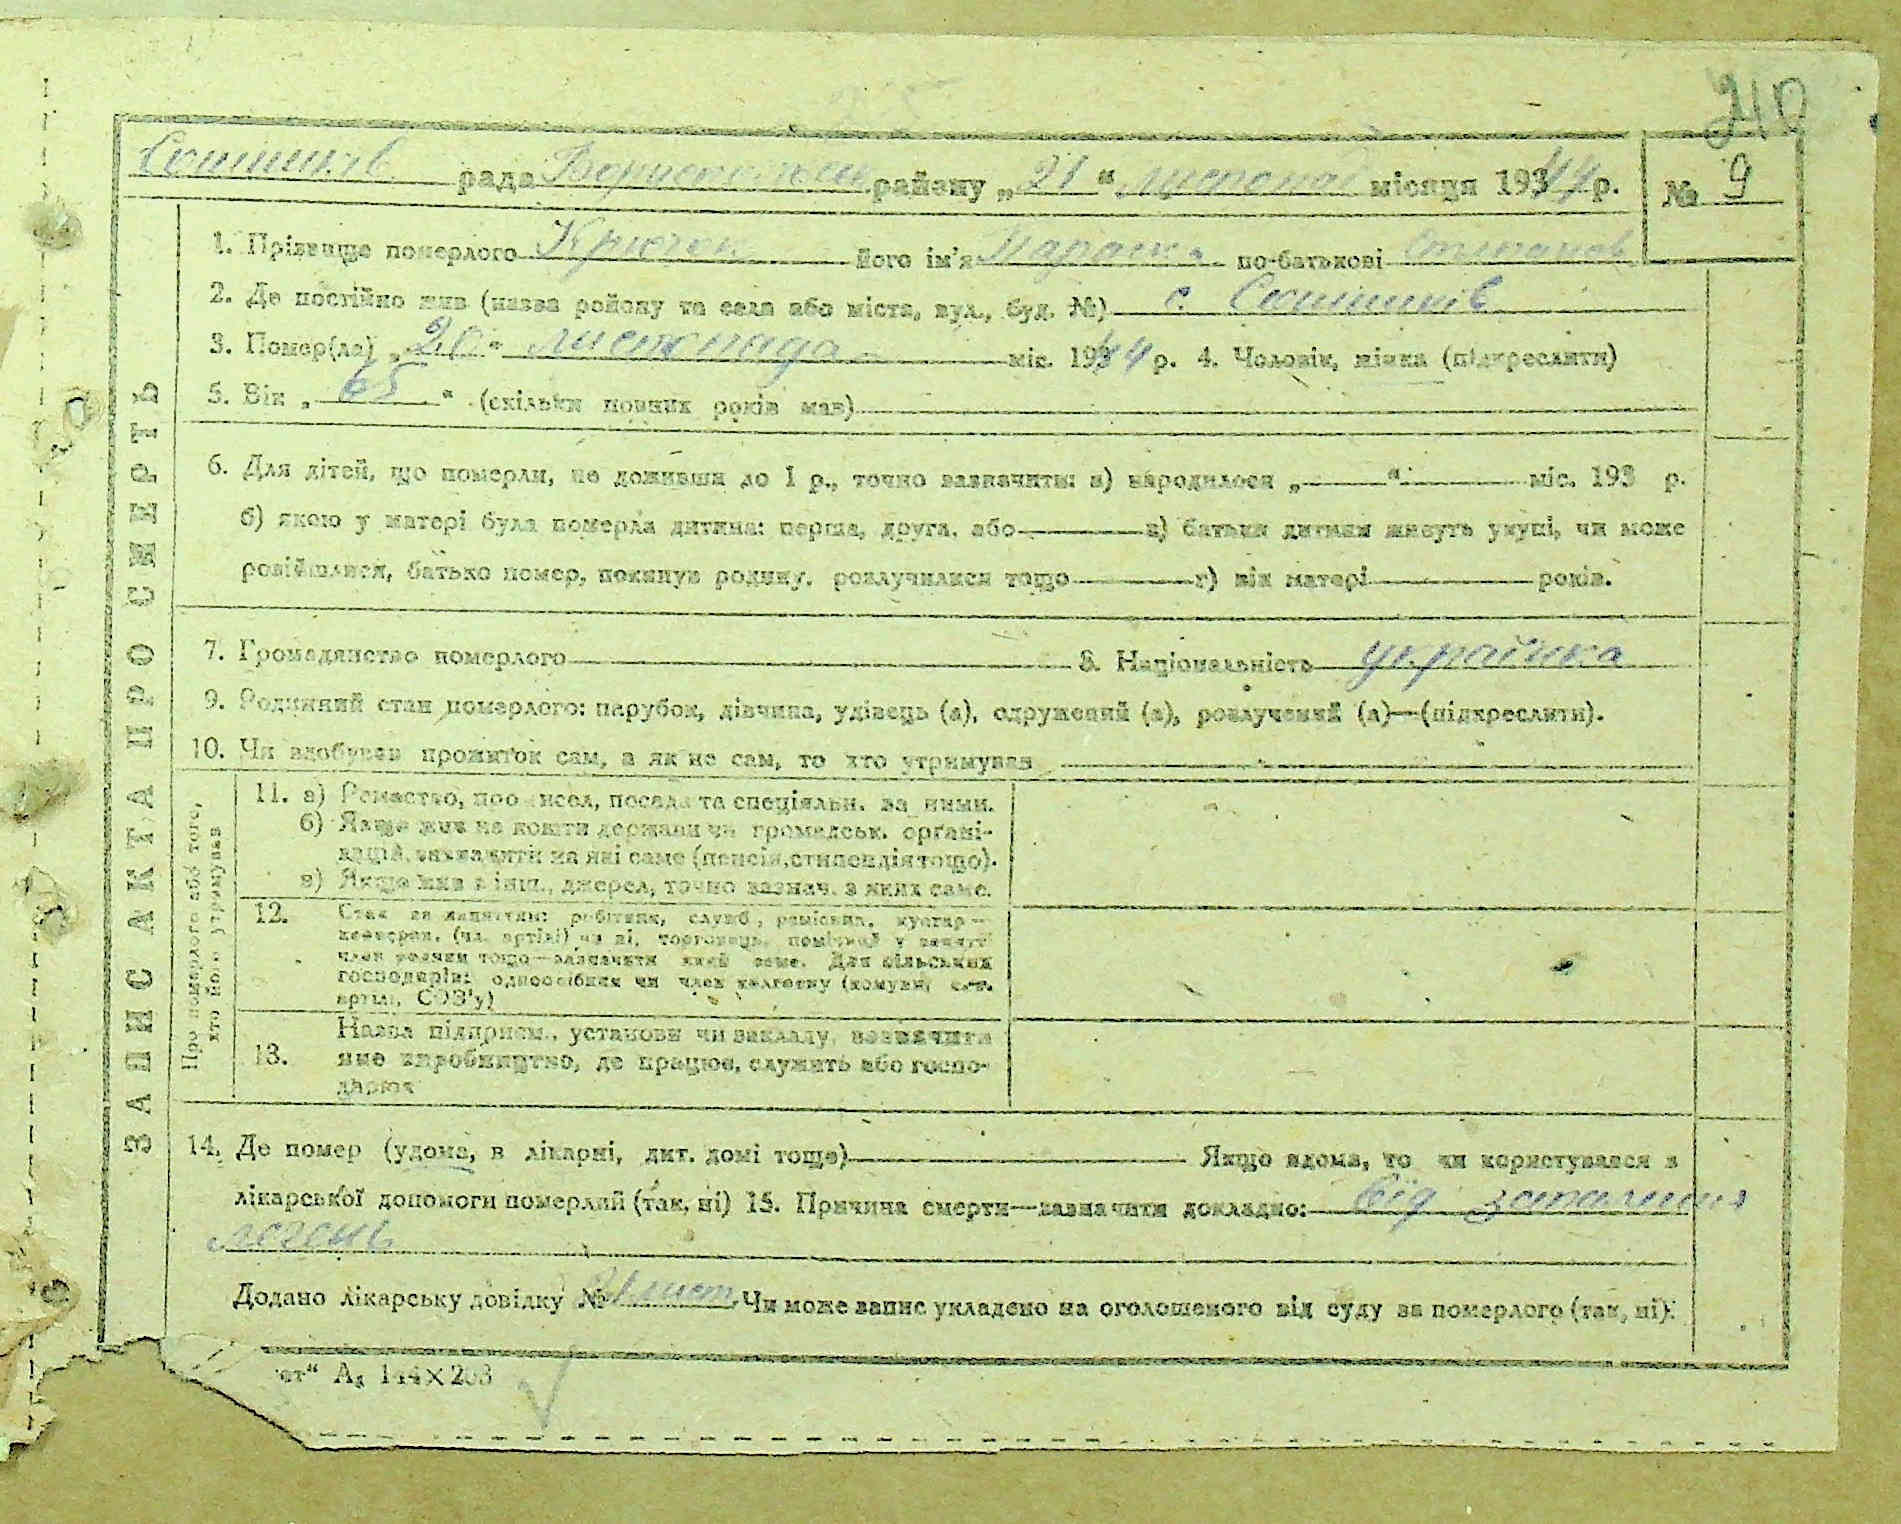 240
Сошників рада Бориспольськ району „21“ листопад місяця 1944 р. № 9
1. Прізвище померлого Крючок його ім'я Параска по-батькові Степанов
2. Де постійно жив (назва району та села або міста, вул., буд. №) с. Сошників
3. Помер(ла) „20“ листопада міс. 1944 р. 4. Чоловік, жінка (підкреслити)
5. Вік „65“ (скільки повних років мав)
6. Для дітей, що померли, не доживши до 1 р., точно зазначити: а) народилося „ “ міс. 193 р.
б) якою у матері була померла дитина: перша, друга, або в) батьки дитини живуть укупі, чи може
розійшлися, батько помер, покинув родину, розлучилися тощо г) вік матері років.
7. Громадянство померлого 8. Національність українка
9. Родинний стан померлого: парубок, дівчина, удівець (а), одружений (а), розлучений (а)—(підкреслити).
10. Чи здобував прожиток сам, а як не сам, то хто утримував
ЗАПИС АКТА ПРО СМЕРТЬ
Про померлого або того,
хто його утримував
11. а) Ремество, промисел, посада та спеціяльн. за ними.
б) Якщо жив на кошти держави чи громадськ. органі-
зацій, зазначити на які саме (пенсія, стипендія тощо).
в) Якщо жив з інш., джерел, точно зазнач. з яких саме.
12. Стан за заняттям: робітник, служб., ремісник, кустар—
кооперов. (чл. артілі) чи ні, торговець, помічний у занятті
член родини тощо—зазначити який саме. Для сільських
господарів: одноосібник чи член колгоспу (комуни, с.-г.
артіл, СОЗ'у)
13. Назва підприєм., установи чи закладу, зазначити
яке виробництво, де працює, служить або госпо-
дарює
14. Де помер (удома, в лікарні, дит. домі тоще) Якщо вдома, то чи користувався з
лікарської допомоги померлий (так, ні) 15. Причина смерти—зазначити докладно: Від запалення
легень
Додано лікарську довідку № Чи може запис укладено на оголошеного від суду за померлого (так, ні).
ет“ А₅ 144×203